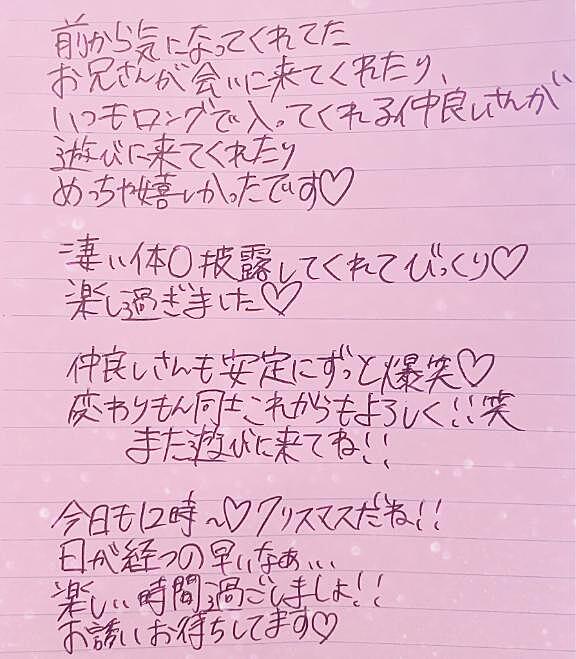 前から気になってくれてた
お兄さんが会いに来てくれたり、
いつもロングで入ってくれる仲良しさんが
遊びに来てくれたり
めっちゃ嬉しかったです♡
凄い体〇披露してくれてびっくり♡
楽し過ぎました♡
仲良しさんも安定にずっと爆笑♡
変わりもん同士これからもよろしく!!笑
また遊びに来てね!!
今日も12時～♡クリスマスだね!!
日が経つの早いなぁ...
楽しい時間過ごしましょ!!
お誘いお待ちしてます♡